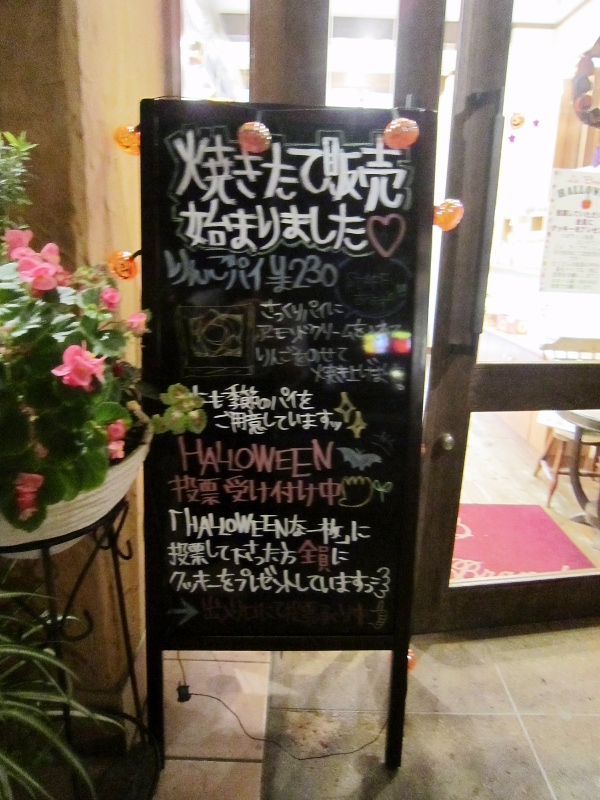 焼きたて販売
始まりました♡
りんごパイ ¥230
さっくりパイに
アーモンドクリーム
りんごをのせて
焼き上げ
も季節のパイを
ご用意しています
HALLOWEEN
投票受け付け中
「HALLOWEENな一枚」に
投票して下さった方全員に
クッキーをプレゼントしています
→
HALLOW